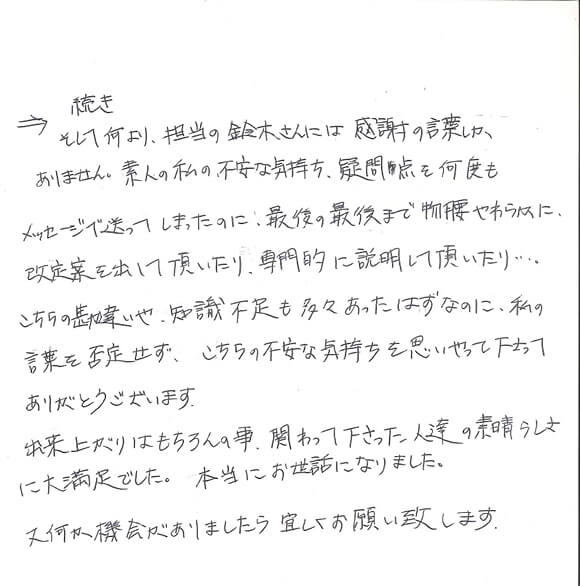 ⇒ 続き
そして何より、担当の鈴木さんには感謝の言葉しか、
ありません。素人の私の不安な気持ち、疑問点を何度も
メッセージで送ってしまったのに、最後の最後まで物腰やわらかに、
改定案を出して頂いたり、専門的に説明して頂いたり…。
こちらの勘違いや、知識不足も多々あったはずなのに、私の
言葉を否定せず、こちらの不安な気持ちを思いやって下さって
ありがとうございます。
出来上がりはもちろんの事、関わって下さった人達の素晴らしさ
に大満足でした。本当にお世話になりました。
又何か機会がありましたら宜しくお願い致します。